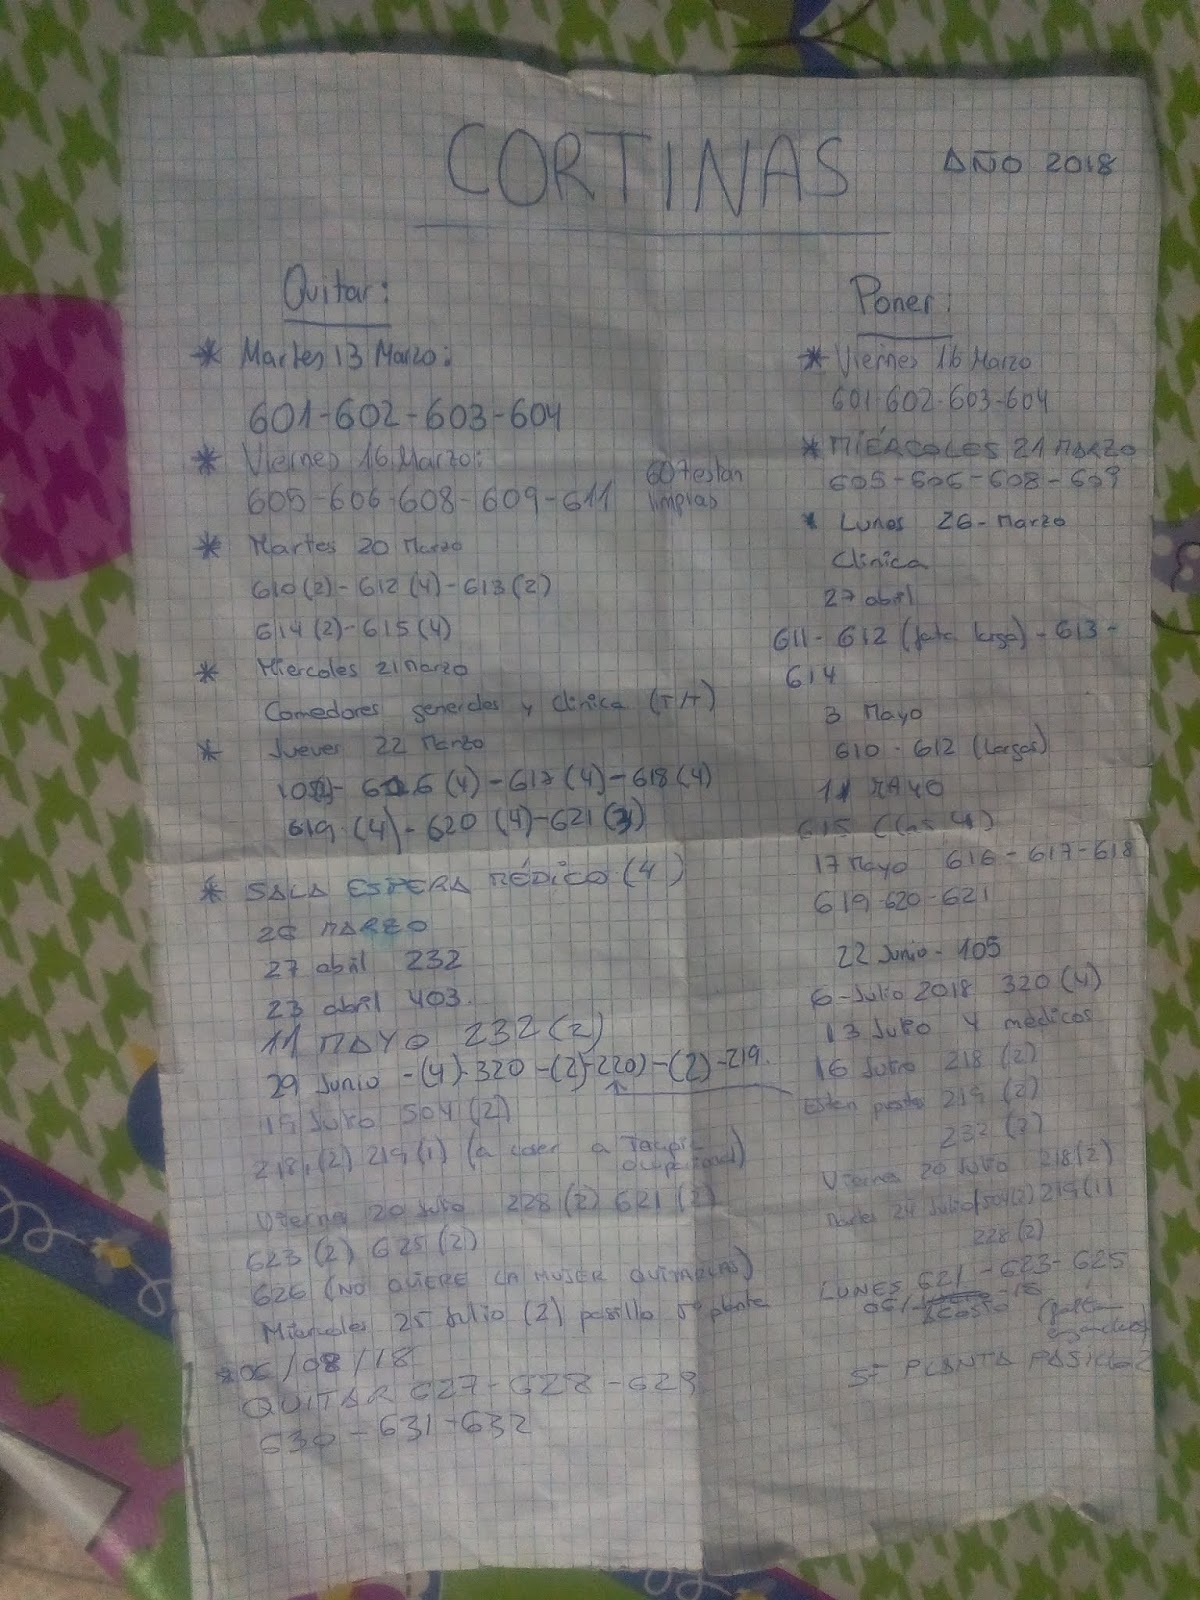 CORTINAS AÑO 2018
Quitar:
* Martes 13 Marzo:
601-602-603-604
* Viernes 16 Marzo:
605-606-608-609-611
607 estan
limpias
* Martes 20 Marzo
610(2)-612(4)-613(2)
614(2)-615(4)
* Miercoles 21 Marzo
Comedores generales y Clinica (T/T)
* Jueves 22 Marzo
616(4)-617(4)-618(4)
619(4)-620(4)-621(3)
* SALA ESPERA MÉDICO (4)
26 MARZO
27 abril 232
23 abril 403
11 MAYO 232(2)
29 Junio -(4)-320-(2)-220)-(2)-219.
19 Julio 504(2)
218,(2) 219(1) (a coser a
Viernes 20 Julio 228(2) 621(2)
623(2) 625(2)
626 (NO QUIERE LA MUJER QUITARLAS)
Miercoles 25 Julio (2) pasillo 5ª planta
* 06/08/18
QUITAR 627-628-629
630-631-632
Poner:
* Viernes 16 Marzo
601-602-603-604
* MIÉRCOLES 21 MARZO
605-606-608-609
* Lunes 26-Marzo
Clinica
27 abril
611-612 (falta larga)-613-
614
3 Mayo
610-612 (Largas)
11 MAYO
615 (las 4)
17 Mayo 616-617-618
619-620-621
22 Junio-105
6-Julio 2018 320(4)
13 Julio 4 médicos
16 Julio 218(2)
Estan puestas 219(2)
232(2)
Viernes 20 Julio 218(2)
Martes 24 Julio(504(2) 219(1)
228(2)
LUNES 621-623-625
5ª PLANTA PASILLO 2